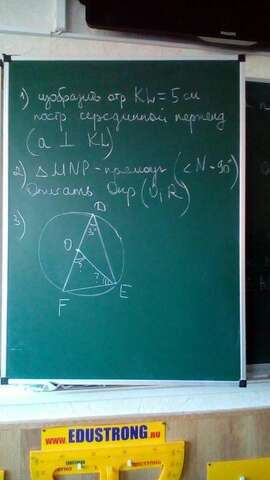 1) изобразить отр KL = 5 см
постр серединный перпенд
(a ⊥ KL)
2) △MNP - прямоуг (<N = 90°)
Описать Окр (O; R)
3)
D
O
35°
?
?
F
E
WWW.EDUSTRONG.RU